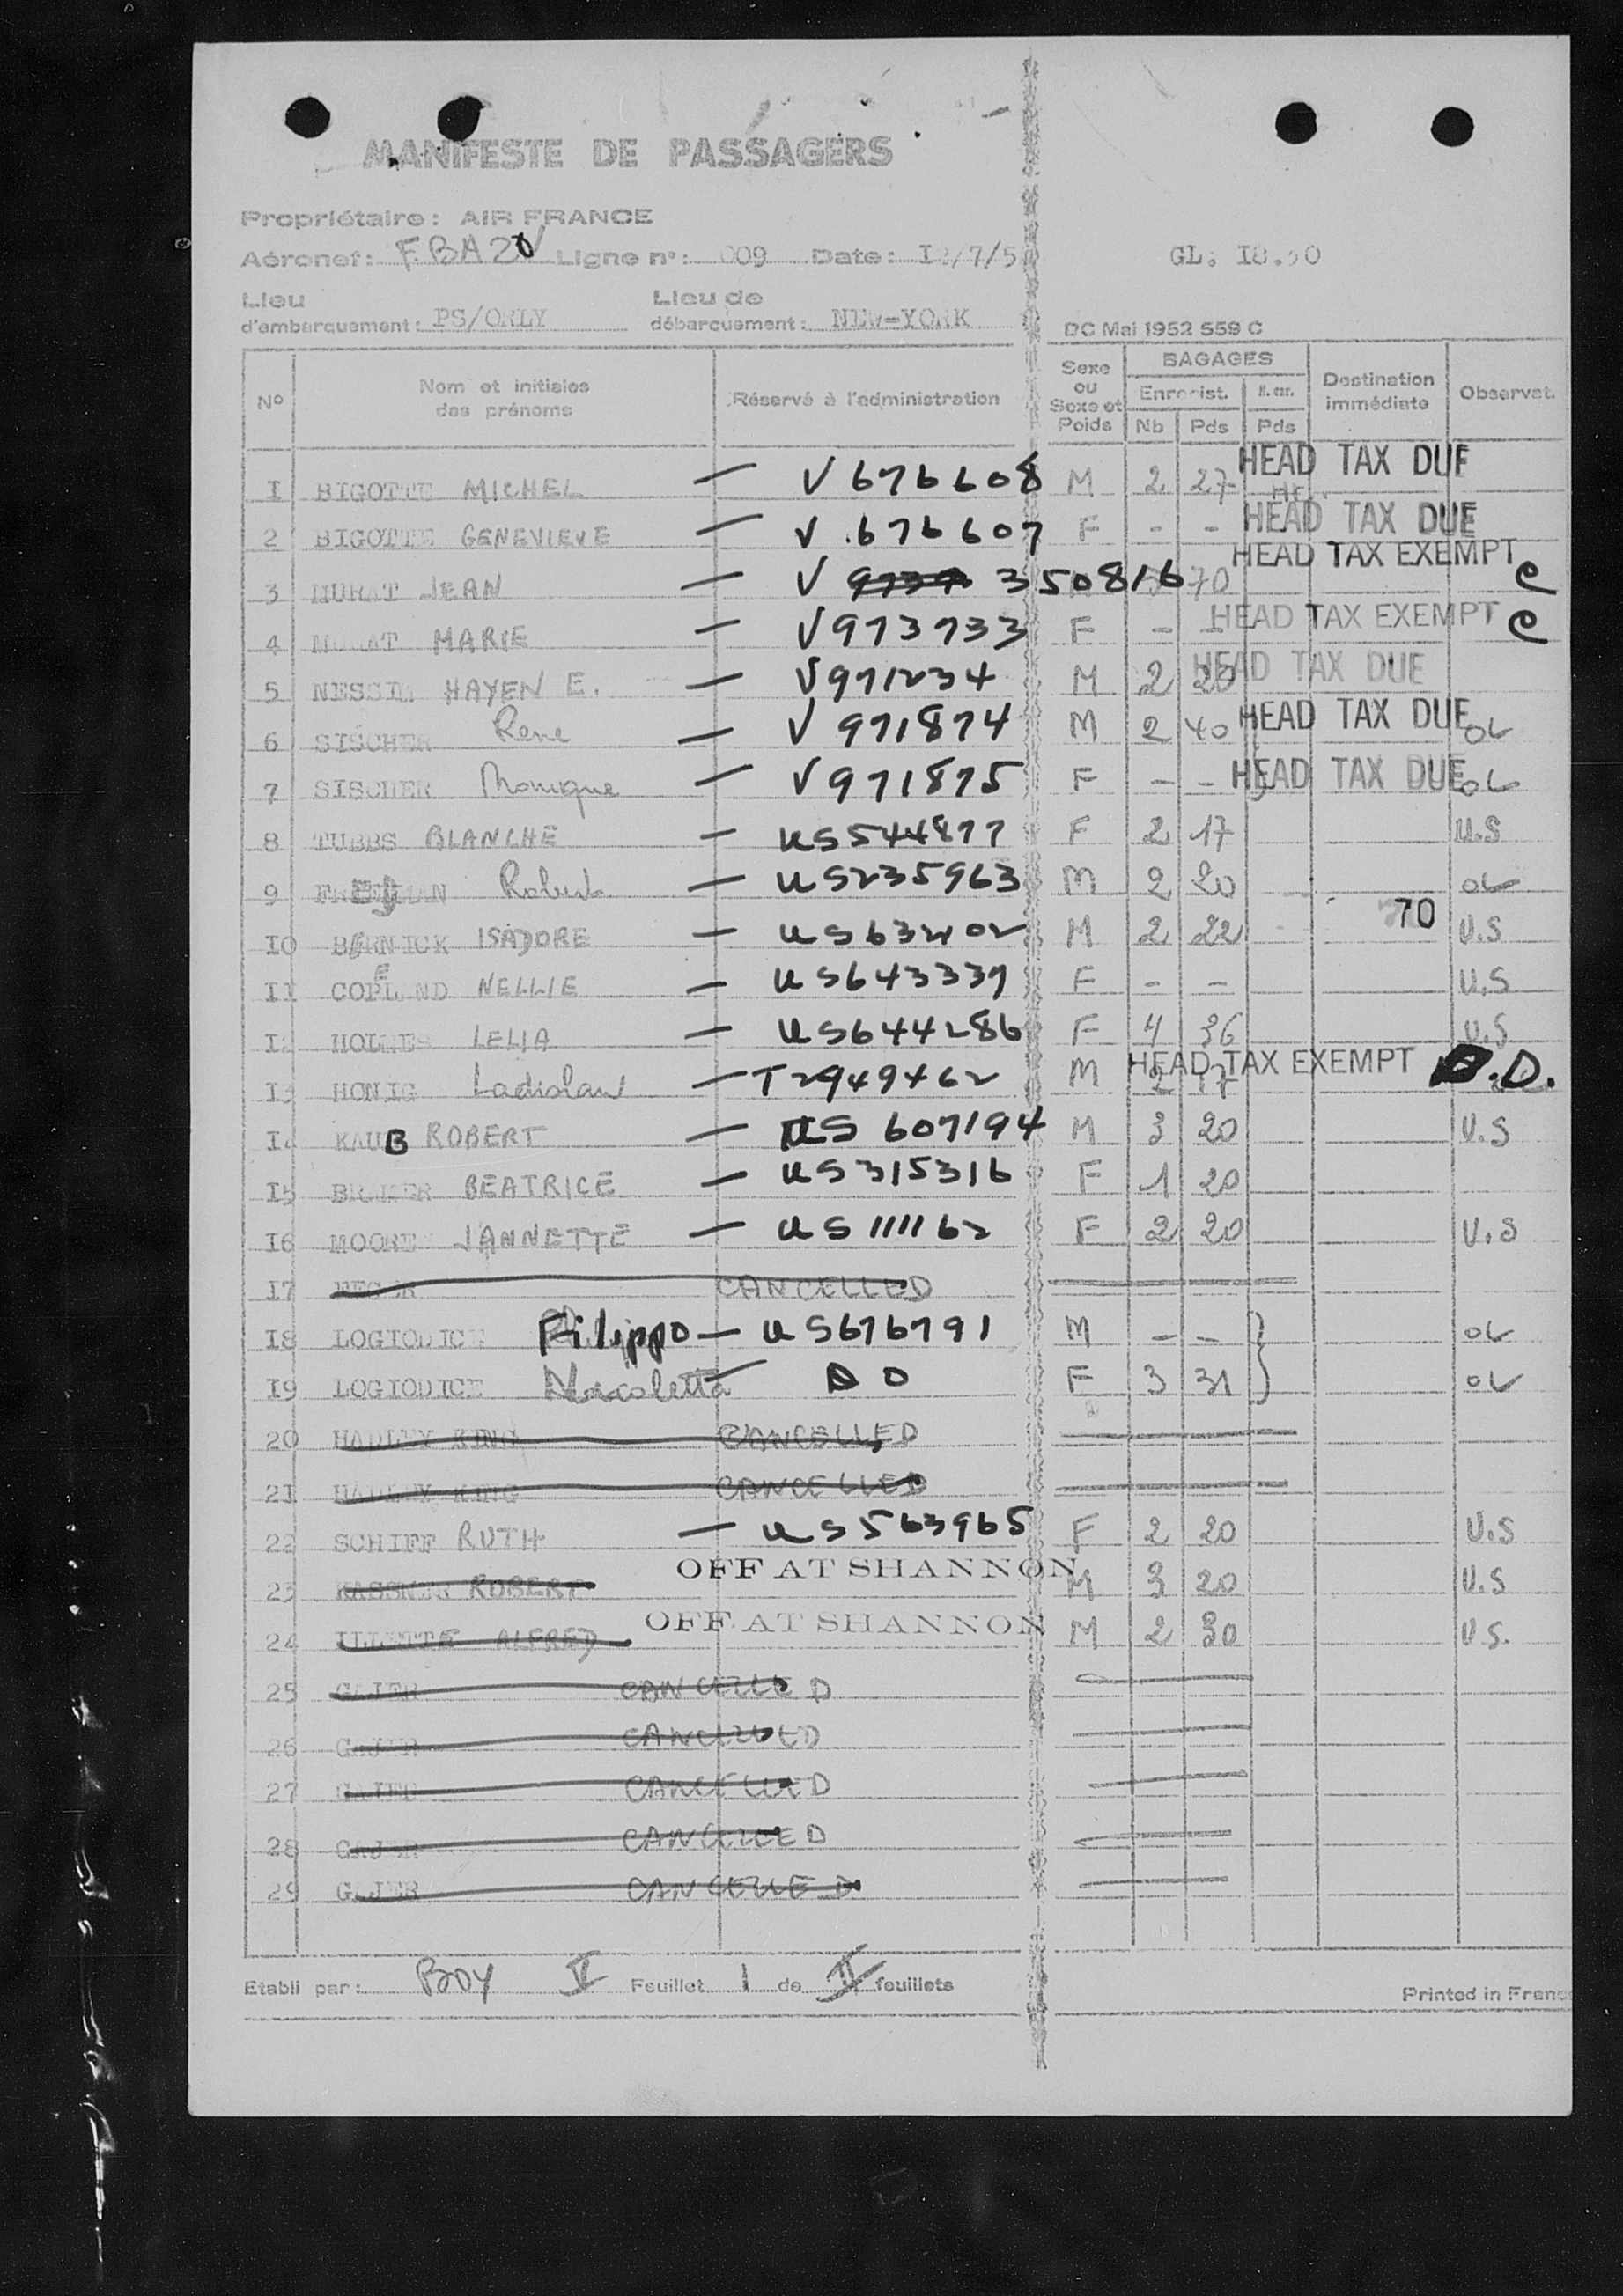 MANIFESTE DE PASSAGERS
Propriétaire: AIR FRANCE
Aéronef: FBAZV Ligne n°: 009 Date: /7/5 GL: I8.50
Lieu d'embarquement: PS/ORLY Lieu de débarquement: NEW-YORK
DC Mai 1952 559 C
N° Nom et initiales des prénoms Réservé à l'administration Sexe ou Sexe et Poids BAGAGES Enregist. Nb Pds Pds Destination immédiate Observat.
I BIGOTTE MICHEL — V 676608 M 2 27 HEAD TAX DUE
2 BIGOTTE GENEVIEVE — V.676607 F - - HEAD TAX DUE
3 MURAT JEAN — V 350816 70 HEAD TAX EXEMPT C
4 MURAT MARIE — V973733 F - - HEAD TAX EXEMPT C
5 NESSIM HAYEN E. — V971234 M 2 20 HEAD TAX DUE
6 SISCHER René — V 971874 M 2 40 HEAD TAX DUE
7 SISCHER Monique — V971875 F - - HEAD TAX DUE
8 TUBBS BLANCHE — US544877 F 2 17 U.S
9 Robert — US235963 M 2 20
I0 BERNICK ISADORE — US632402 M 2 22 70 U.S
I1 COPELAND NELLIE — US643339 F - - U.S
I2 HOLMES LELIA — US644286 F 4 36 U.S
I3 HONIG Ladislav — T2949462 M 2 17 HEAD TAX EXEMPT .D.
I4 KAUB ROBERT — US 607194 M 3 20 U.S
I5 BEATRICE — US315316 F 1 20
I6 MOORE JANNETTE — US 111162 F 2 20 U.S
I7 CANCELLED
I8 LOGIODICE Filippo — US676791 M - -
I9 LOGIODICE Nicoletta DO F 3 31
20 HADLEY KING CANCELLED
21 HADLEY KING CANCELLED
22 SCHIFF RUTH — US563965 F 2 20 U.S
23 KASSNER ROBERT OFF AT SHANNON M 3 20 U.S
24 ILLETTE ALFRED OFF AT SHANNON M 2 30 U.S.
25 GAJER CANCELLED
26 GAJER CANCELLED
27 GAJER CANCELLED
28 GAJER CANCELLED
29 GAJER CANCELLED
Etabli par: BOY Feuillet 1 de II feuillets
Printed in Franc